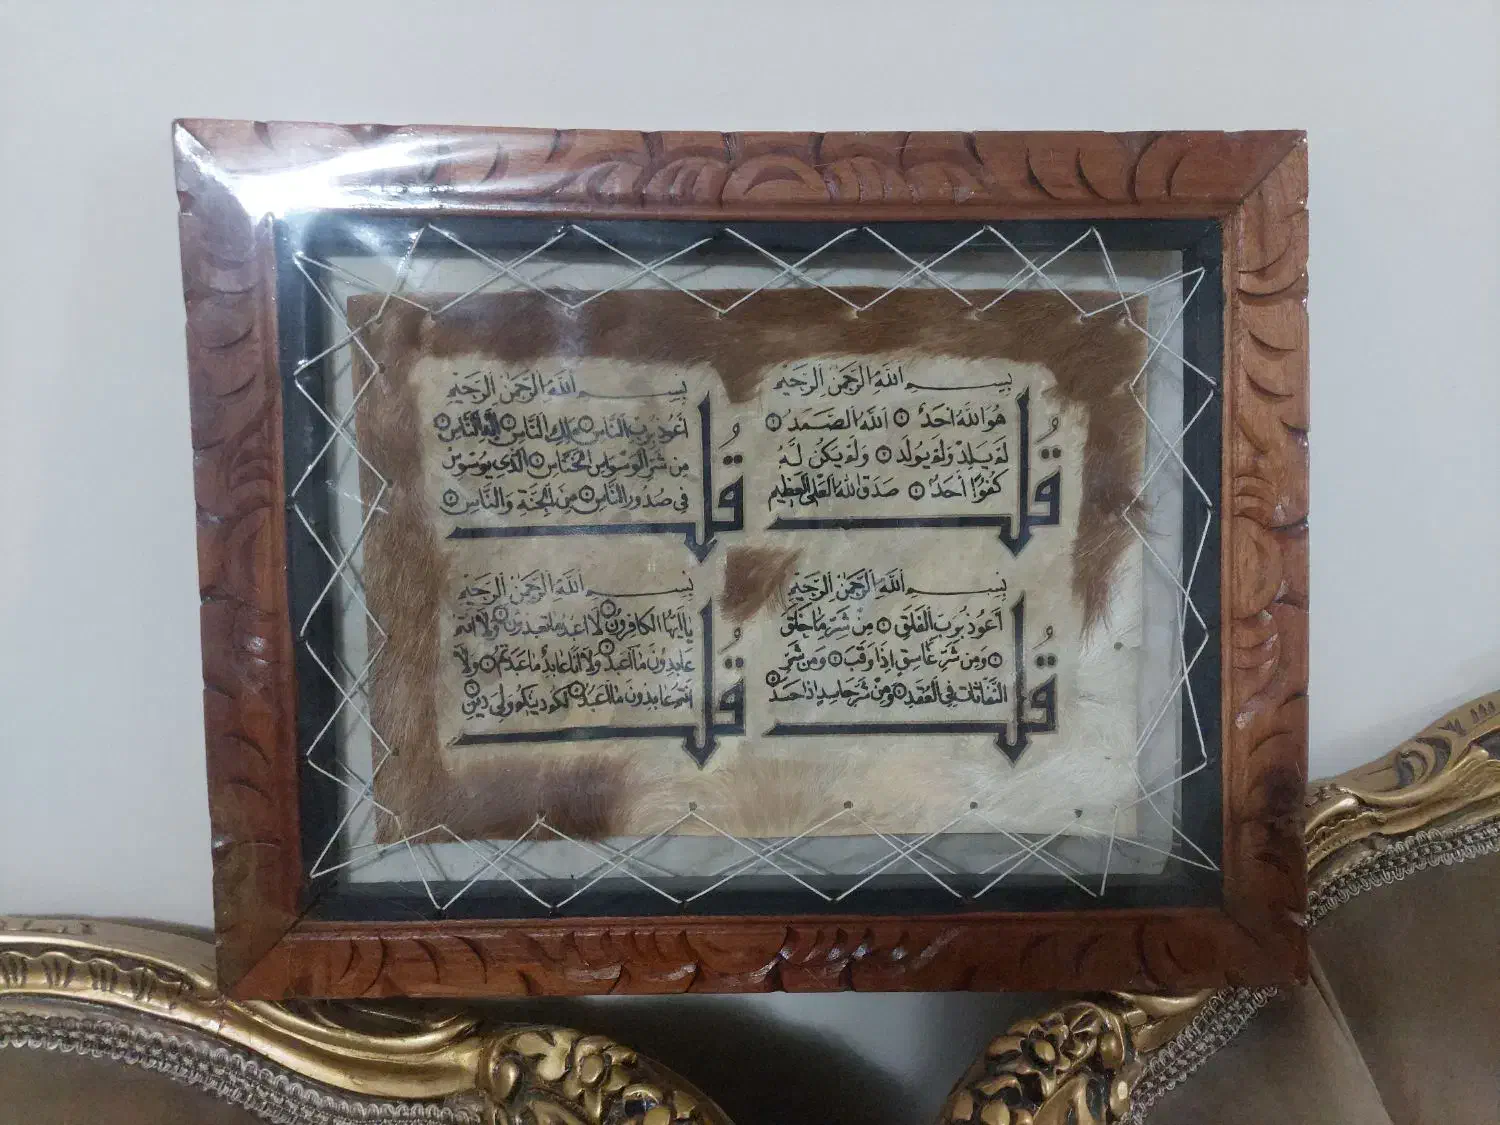 بِسْمِ اللَّهِ الرَّحْمَنِ الرَّحِيمِ
قُلْ
هُوَ اللَّهُ أَحَدٌ ۝ اللَّهُ الصَّمَدُ ۝
لَمْ يَلِدْ وَلَمْ يُولَدْ ۝ وَلَمْ يَكُنْ لَهُ
كُفُوًا أَحَدٌ ۝ صَدَقَ اللَّهُ الْعَلِيُّ الْعَظِيمُ
بِسْمِ اللَّهِ الرَّحْمَنِ الرَّحِيمِ
قُلْ
أَعُوذُ بِرَبِّ النَّاسِ ۝ مَلِكِ النَّاسِ ۝ إِلَهِ النَّاسِ ۝
مِنْ شَرِّ الْوَسْوَاسِ الْخَنَّاسِ ۝ الَّذِي يُوَسْوِسُ
فِي صُدُورِ النَّاسِ ۝ مِنَ الْجِنَّةِ وَالنَّاسِ ۝
بِسْمِ اللَّهِ الرَّحْمَنِ الرَّحِيمِ
قُلْ
أَعُوذُ بِرَبِّ الْفَلَقِ ۝ مِنْ شَرِّ مَا خَلَقَ
۝ وَمِنْ شَرِّ غَاسِقٍ إِذَا وَقَبَ ۝ وَمِنْ شَرِّ
النَّفَّاثَاتِ فِي الْعُقَدِ ۝ وَمِنْ شَرِّ حَاسِدٍ إِذَا حَسَدَ ۝
بِسْمِ اللَّهِ الرَّحْمَنِ الرَّحِيمِ
قُلْ
يَا أَيُّهَا الْكَافِرُونَ ۝ لَا أَعْبُدُ مَا تَعْبُدُونَ ۝ وَلَا أَنْتُمْ
عَابِدُونَ مَا أَعْبُدُ ۝ وَلَا أَنَا عَابِدٌ مَا عَبَدْتُمْ ۝ وَلَا
أَنْتُمْ عَابِدُونَ مَا أَعْبُدُ ۝ لَكُمْ دِينُكُمْ وَلِيَ دِينِ ۝